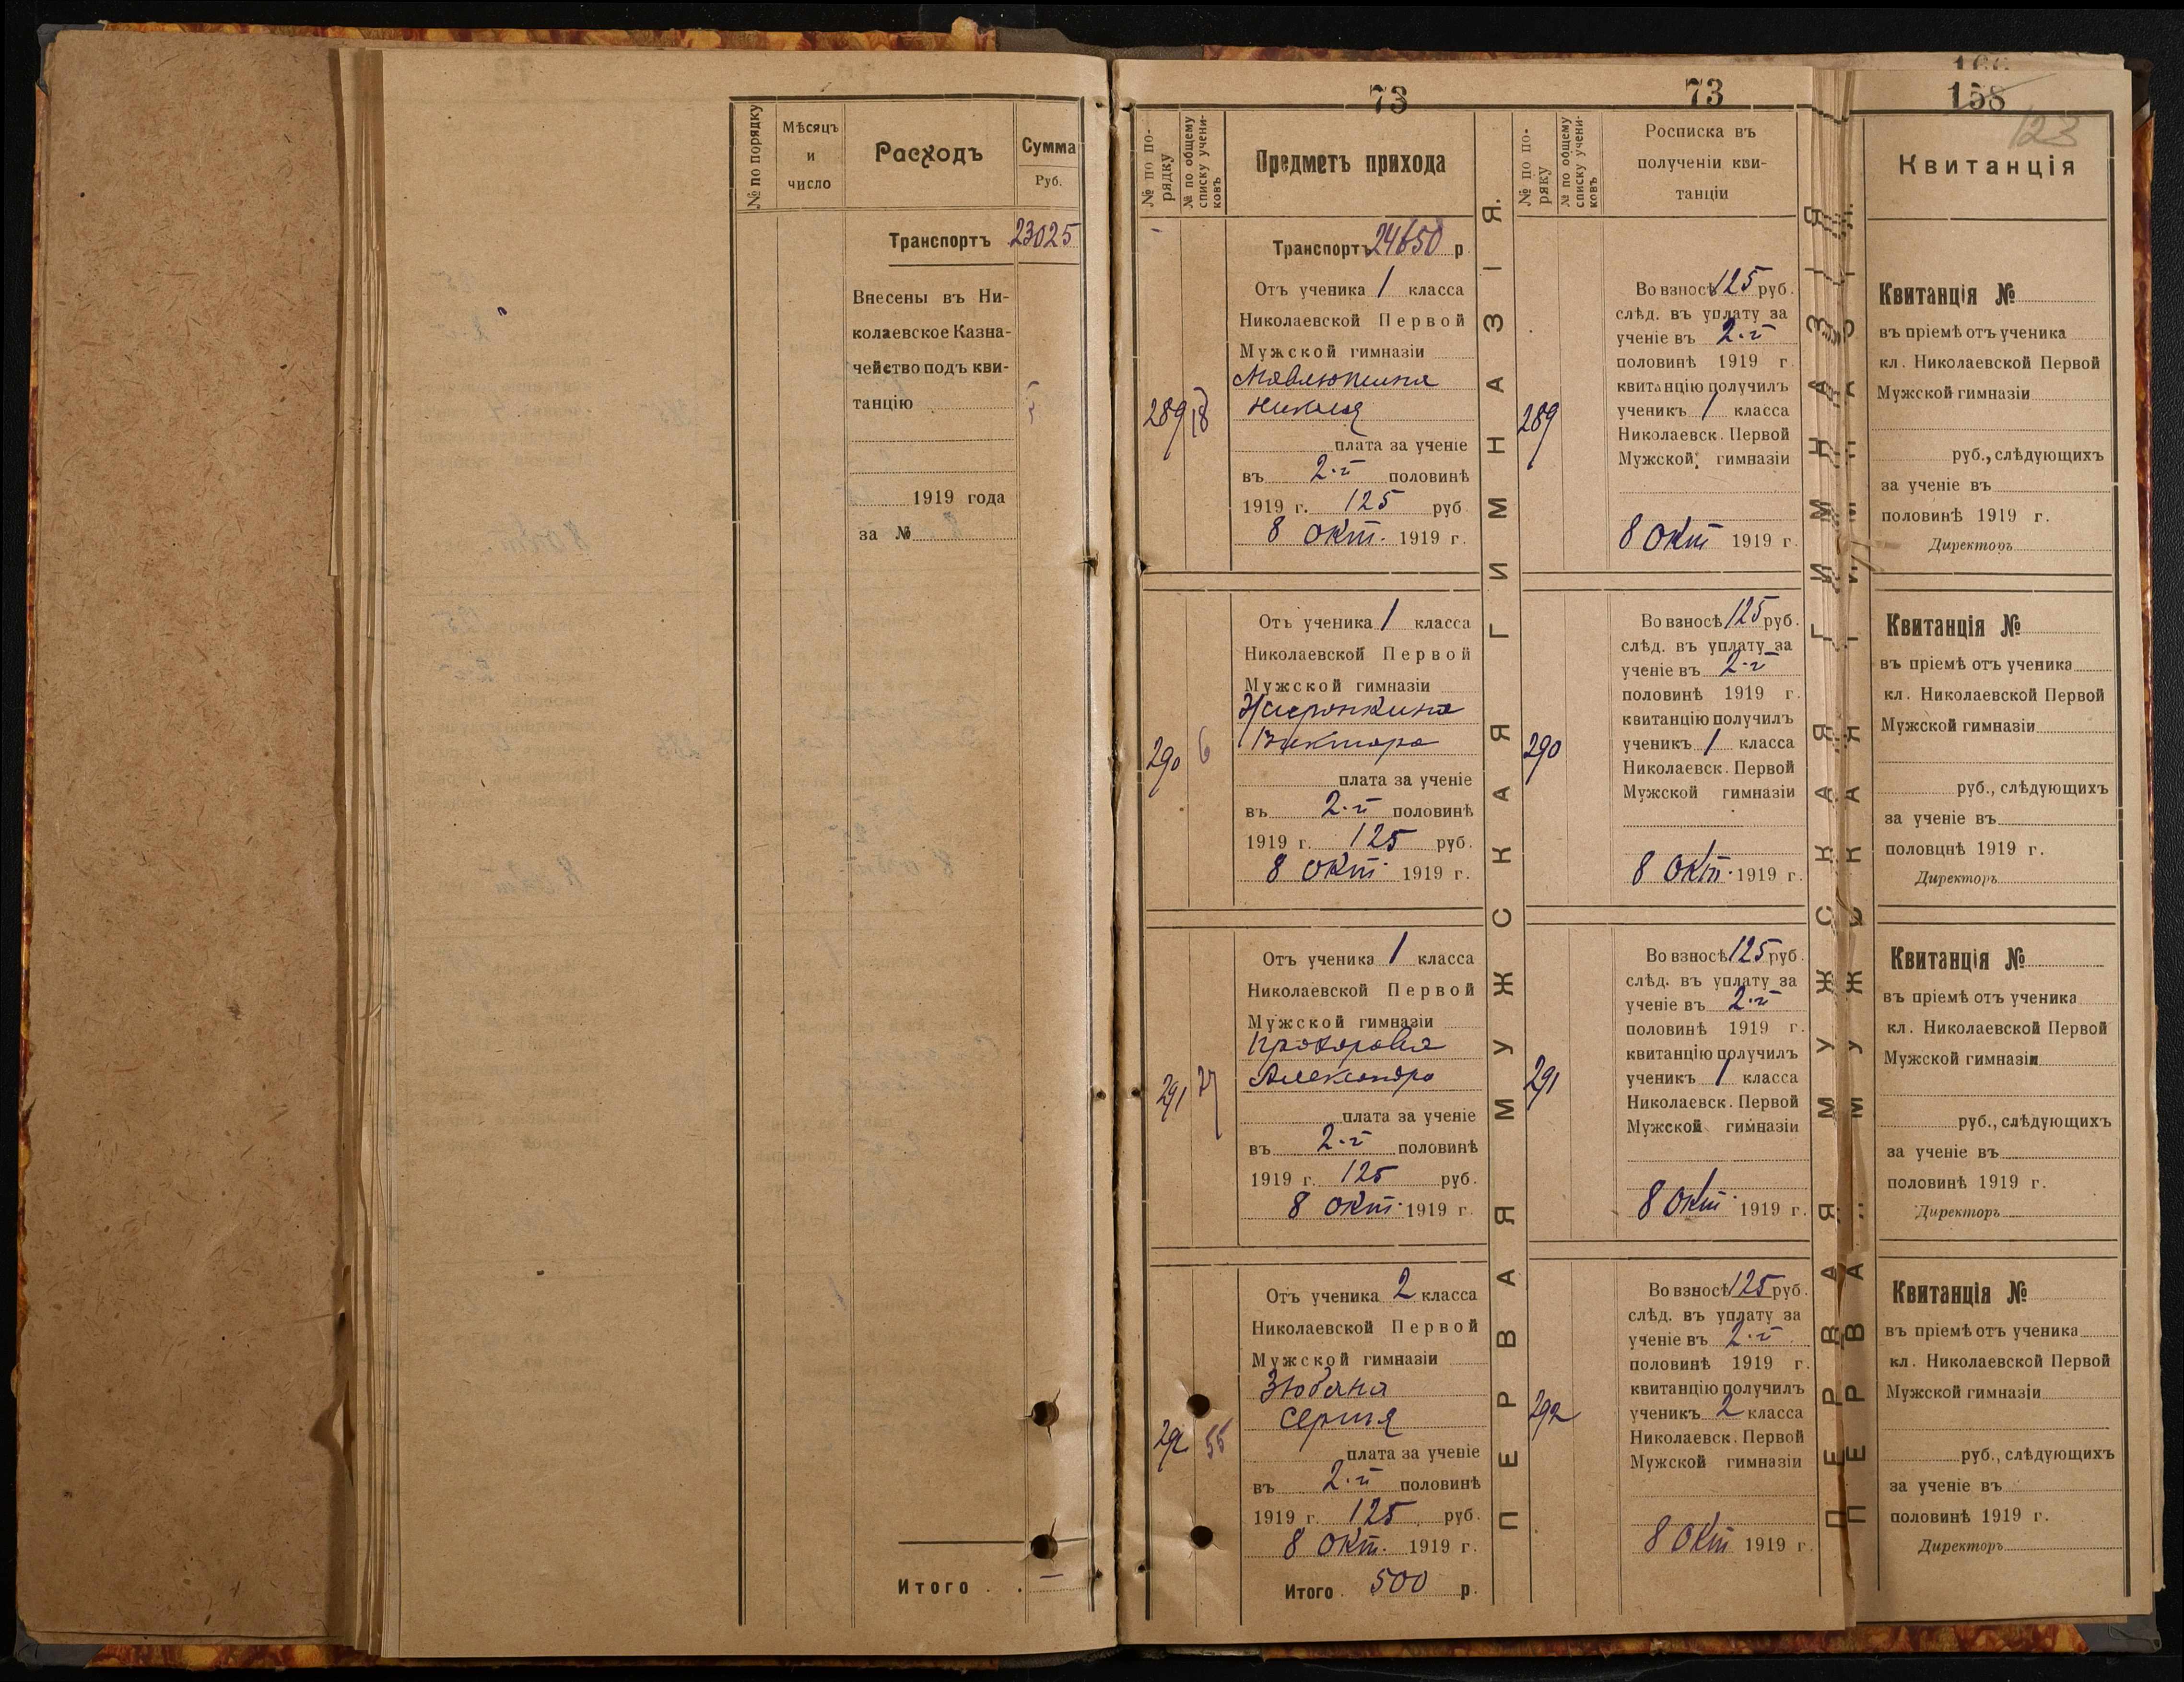 № по порядку
Мѣсяцъ
и
число
Расходъ
Сумма
Руб.
Транспортъ 23025
Внесены въ Ни-
колаевское Казна-
чейство подъ кви-
танцію
1919 года
за №
Итого . .
73
№ по по-
рядку
№ по общему
списку учени-
ковъ
Предметъ прихода
Транспортъ 24650 р
289 18
Отъ ученика 1 класса
Николаевской Первой
Мужской гимназіи
Николая
плата за ученіе
въ 2-й половинѣ
1919 г. 125 руб
8 окт. 1919 г.
290 6
Отъ ученика 1 класса
Николаевской Первой
Мужской гимназіи
Виктора
плата за ученіе
въ 2-й половинѣ
1919 г. 125 руб.
8 окт. 1919 г.
291 27
Отъ ученика 1 класса
Николаевской Первой
Мужской гимназіи
Прохорова
Александра
плата за ученіе
въ 2-й половинѣ
1919 г. 125 руб.
8 окт. 1919 г.
292 55
Отъ ученика 2 класса
Николаевской Первой
Мужской гимназіи
Зюбана
Сергѣя
плата за ученіе
въ 2-й половинѣ
1919 г. 125 руб.
8 окт. 1919 г.
Итого . 500 р.
ПЕРВАЯ МУЖСКАЯ ГИМНАЗІЯ.
73
№ по по-
ряку
№ по общему
списку учени-
ковъ
Росписка въ
полученіи кви-
танціи
289
Во взносѣ 125 руб.
слѣд. въ уплату за
ученіе въ 2-й
половинѣ 1919 г.
квитанцію получилъ
ученикъ 1 класса
Николаевск. Первой
Мужской гимназіи
8 окт 1919 г.
290
Во взносѣ 125 руб.
слѣд. въ уплату за
ученіе въ 2-й
половинѣ 1919 г.
квитанцію получилъ
ученикъ 1 класса
Николаевск. Первой
Мужской гимназіи
8 окт. 1919 г.
291
Во взносѣ 125 руб.
слѣд. въ уплату за
ученіе въ 2-й
половинѣ 1919 г.
квитанцію получилъ
ученикъ 1 класса
Николаевск. Первой
Мужской гимназіи
8 окт. 1919 г.
292
Во взносѣ 125 руб.
слѣд. въ уплату за
ученіе въ 2-й
половинѣ 1919 г.
квитанцію получилъ
ученикъ 2 класса
Николаевск. Первой
Мужской гимназіи
8 окт 1919 г.
ПЕРВАЯ МУЖСКАЯ ГИМНАЗІЯ
158
123
Квитанція
Квитанція №
въ пріемѣ отъ ученика
кл. Николаевской Первой
Мужской гимназіи
руб., слѣдующихъ
за ученіе въ
половинѣ 1919 г.
Директоръ
Квитанція №
въ пріемѣ отъ ученика
кл. Николаевской Первой
Мужской гимназіи
руб., слѣдующихъ
за ученіе въ
половцнѣ 1919 г.
Директоръ
Квитанція №
въ пріемѣ отъ ученика
кл. Николаевской Первой
Мужской гимназіи
руб., слѣдующихъ
за ученіе въ
половинѣ 1919 г.
Директоръ
Квитанція №
въ пріемѣ отъ ученика
кл. Николаевской Первой
Мужской гимназіи
руб., слѣдующихъ
за ученіе въ
половинѣ 1919 г.
Директоръ